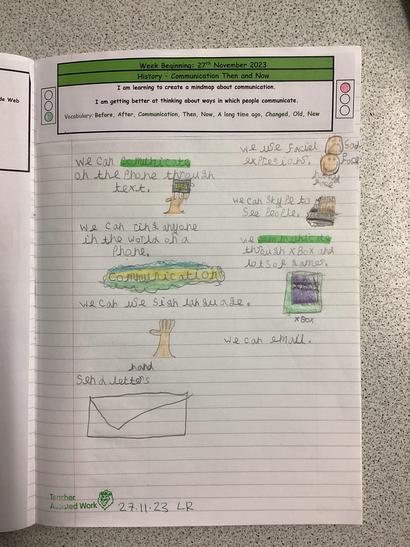 de Web
Week Beginning: 27th November 2023
History - Communication Then and Now
I am learning to create a mindmap about communication.
I am getting better at thinking about ways in which people communicate.
Vocabulary: Before, After, Communication, Then, Now, A long time ago, Changed, Old, New
we can comunicate
on the Phone through
text.
we use facial
expresions.
Sad
face
happy
face
we can Skype to
See PeoPle.
we can cind anyone
in the world on a
Phone.
we communicate
through xBox and
lots of games.
xBox
Communication
we can use Sign language.
hand
we can email.
Send letters
Teacher
Assisted Work
27.11.23 LR